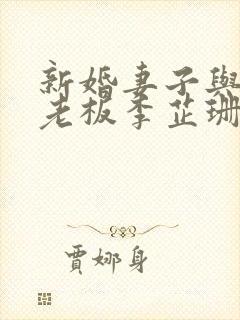 新婚妻子與
老板李芷珊
賈娜身